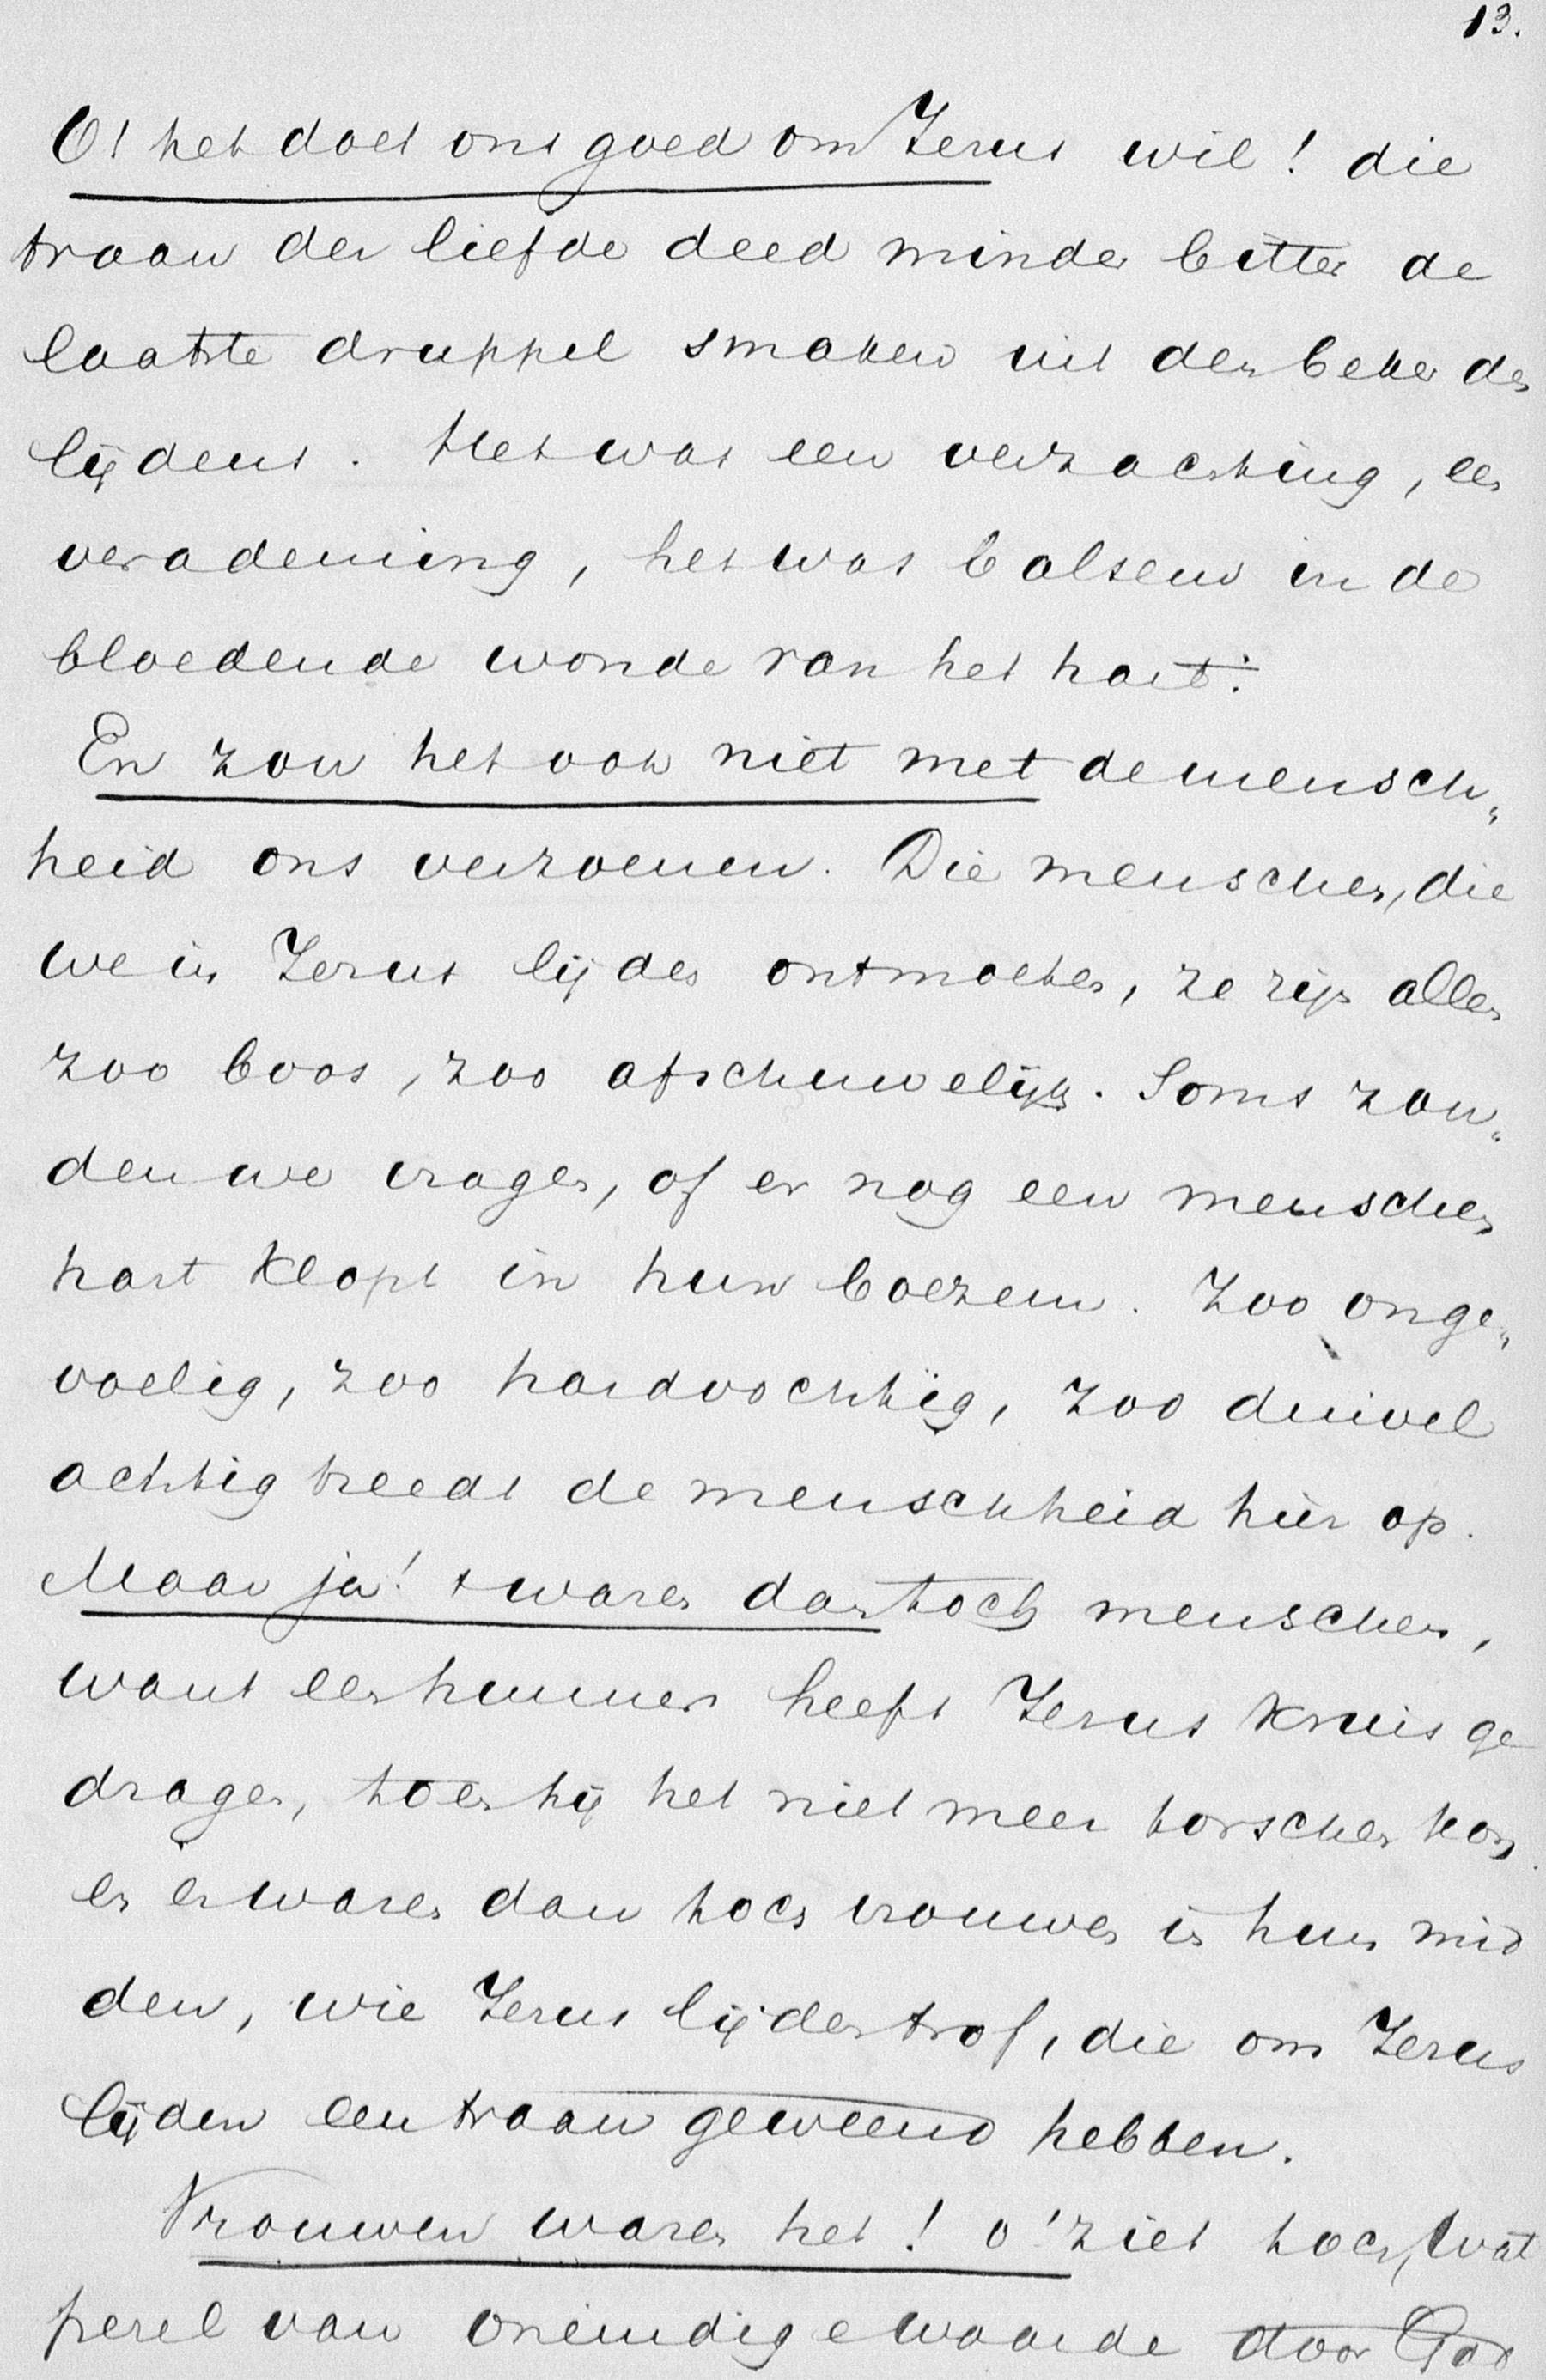 13.
O! het doet ons goed om Jezus wil! die
traan der liefde deed minder bitter de
laatste druppel smaken uit den beker des
lijdens. Het was een verzachting, een
verademing, het was balsem in de
bloedende wonde van het hart.
En zou het ook niet met de mensch„
heid ons verzoenen. Die menschen, die
we in Jezus lijden ontmoeten, ze zijn allen
zoo boos, zoo afschuwelijk. Soms zou„
den we vragen, of er nog een menschen
hart klopt in hun boezem. Zoo onge„
voelig, zoo hardvochtig, zoo duivel
achtig treedt de menschheid hier op.
Maar ja! 't waren dan toch menschen,
want een hunner heeft Jezus kruis ge
dragen, toen hij het niet meer torschen kon,
en er waren dan toch vrouwen in hun mid
den, wie Jezus lijden trof, die om Jezus
lijden een traan geweend hebben.
Vrouwen waren het! o! ziet toch, wat
perel van oneindige waarde door God